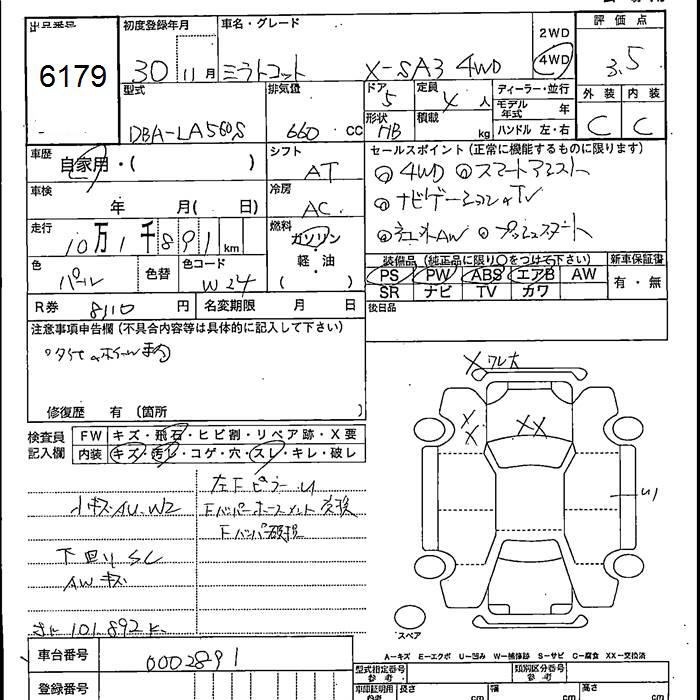 出品番号 初度登録年月 車名・グレード 2WD 評価点
6179 30 11月 ミラトコット X-SA3 4WD 4WD 3.5
型式 排気量 ドア 定員 ディーラー・並行 外装 内装
DBA-LA560S 660 CC 5 4 人 モデル年式 年 C C
形状 HB 積載 kg ハンドル 左・右
車歴 自家用・( ) シフト AT セールスポイント(正常に機能するものに限ります)
◎4WD ◎スマートアシスト
車検 年 月( 日) 冷房 AC
◎ナビゲーション TV
走行 10万1千891 km 燃料 ガソリン 軽・油 ( )
AW ◎プッシュスタート
装備品(純正品に限り〇をつけて下さい) 新車保証書
色 パール 色替 色コード W24
PS PW ABS エアB AW 有・無
SR ナビ TV カワ
R券 8110 円 名変期限 月 日 後日品
注意事項申告欄(不具合内容等は具体的に記入して下さい)
修復歴 有 (箇所 )
X ワレ大
検査員記入欄 FW キズ・飛石・ヒビ割・リペア跡・X要
内装 キズ・汚レ・コゲ・穴・スレ・キレ・破レ
X X XX
左Fピラー U
小キズ AU、W2 Fバンパーホースメント交換
Fバンパ破損
U1
下回り SC
AWキズ
101,892K
スペア
A-キズ E-エクボ U-凹み W-補修跡 S-サビ C-腐食 XX-交換済
車台番号 0002891 型式指定番号 参考 類別区分番号 参考
登録番号 車庫証明用 参考 長さ cm 幅 cm 高さ cm